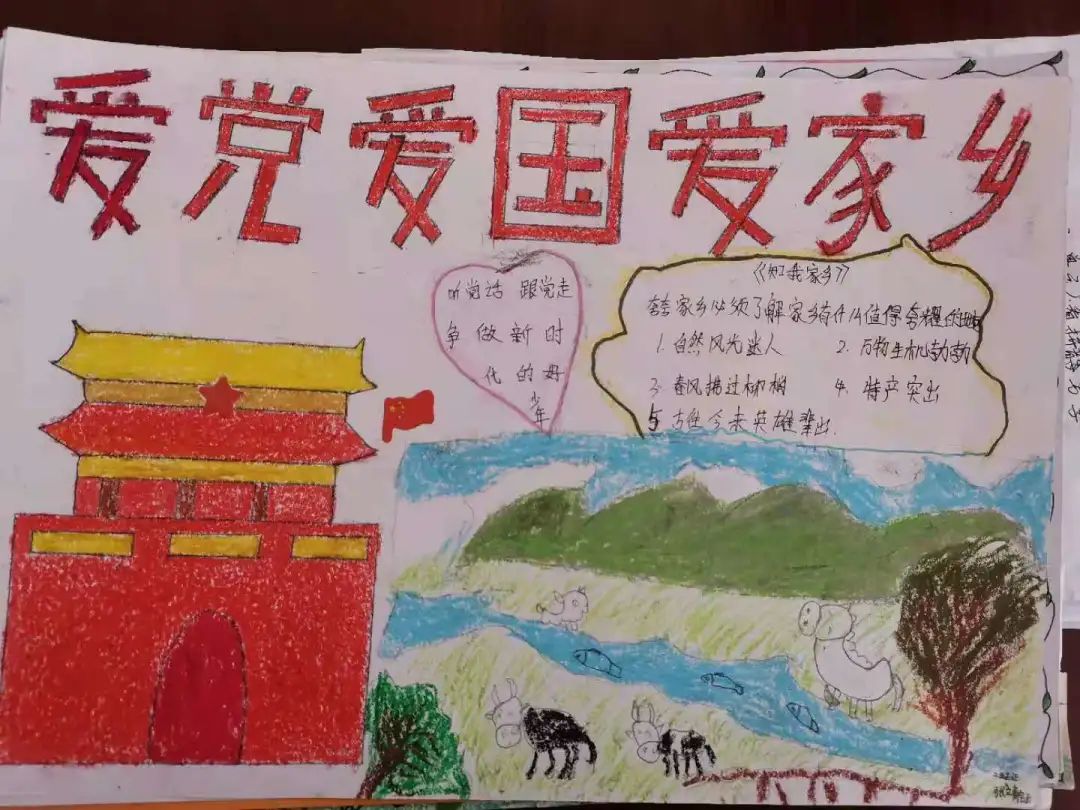 爱党爱国爱家乡
听党话 跟党走
争 做 新 时
代 的 好
少
年
《知我家乡》
夸家乡必须了解家乡有什么值得夸耀的地
1. 自然风光迷人 2. 万物生机勃勃
3. 春风拂过柳树 4. 特产突出
5 古往今来英雄辈出.